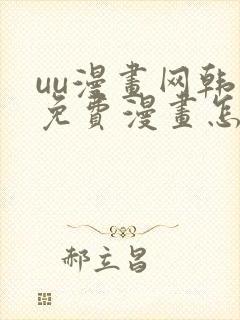 uu漫畫网韩
免費漫畫怎
郝立昌